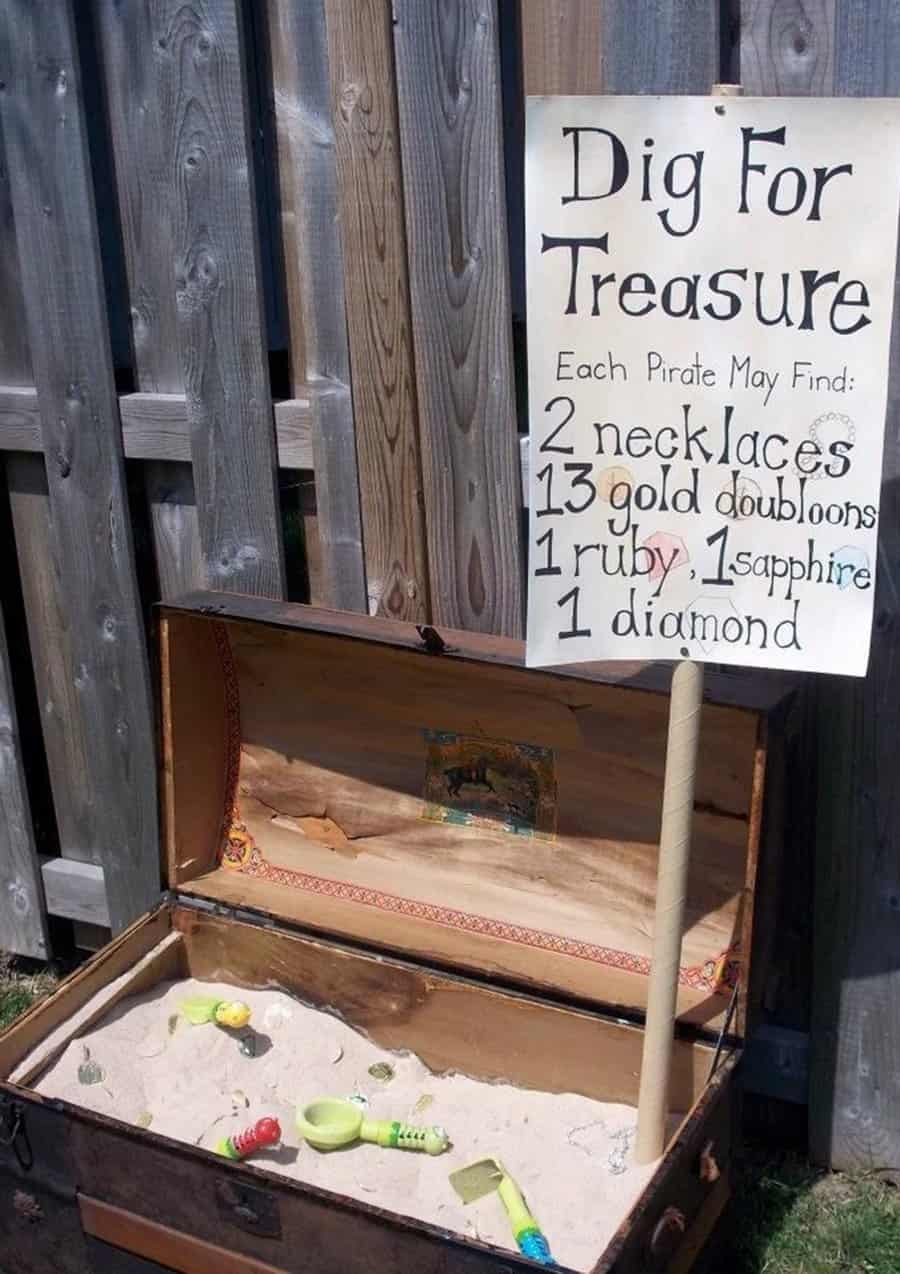 Dig For
Treasure
Each Pirate May Find:
2 necklaces
13 gold doubloons
1 ruby, 1 sapphire
1 diamond